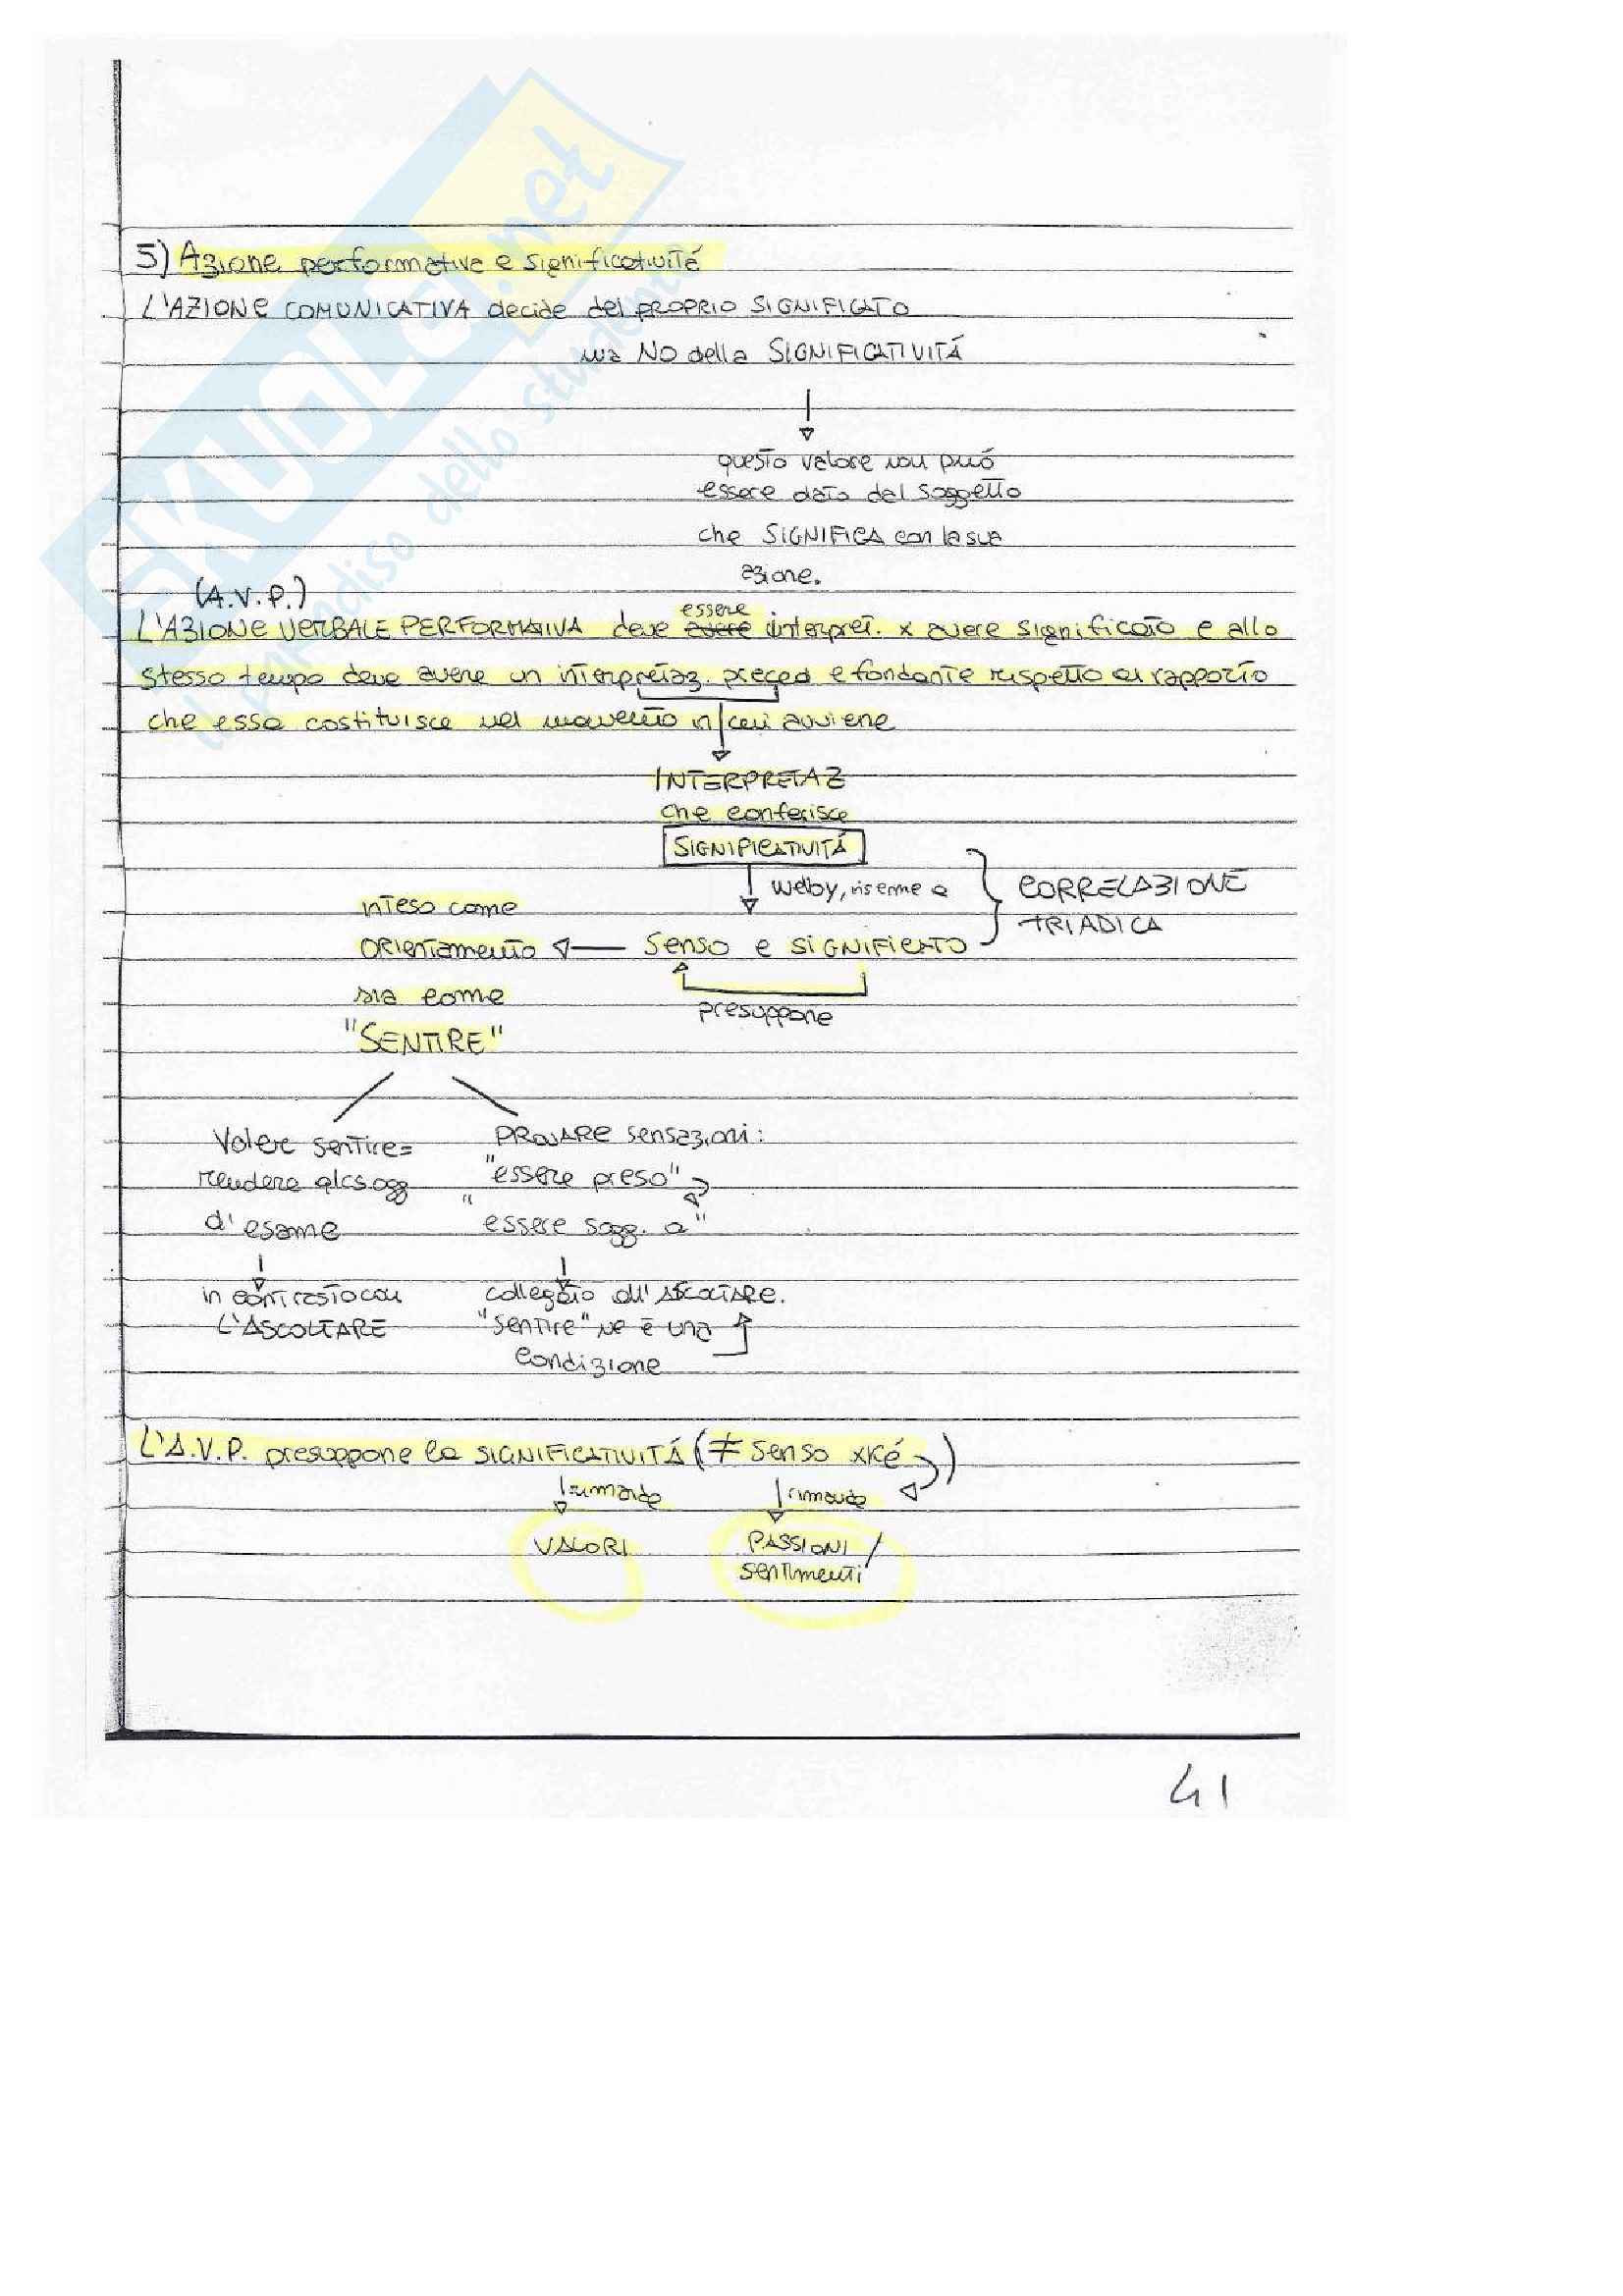 SKUOLA.net
il paradiso dello studente
5) Azione performativa e significatività
L'AZIONE COMUNICATIVA decide del PROPRIO SIGNIFICATO
ma NO della SIGNIFICATIVITÁ
questo valore non può
essere dato dal soggetto
che SIGNIFICA con la sua
azione.
(A.V.P.)
essere
L'AZIONE VERBALE PERFORMATIVA deve avere interpret. x avere significato e allo
stesso tempo deve avere un interpretaz. preced e fondante rispetto al rapporto
che essa costituisce nel momento in cui avviene
INTERPRETAZ
che conferisce
SIGNIFICATIVITÁ
Welby, insieme a
CORRELAZIONE
TRIADICA
inteso come
orientamento
Senso e SIGNIFICATO
sia come
presuppone
"SENTIRE"
Volere sentire=
PROVARE sensazioni:
rendere qlcs ogg
"essere preso"
d'esame
"essere sogg. a"
in contrasto con
collegato all'ASCOLTARE.
L'ASCOLTARE
"sentire" ne è una
condizione
L'A.V.P. presuppone la SIGNIFICATIVITÁ (≠ senso xké )
rimanda
rimanda
VALORI
PASSIONI /
sentimenti
41